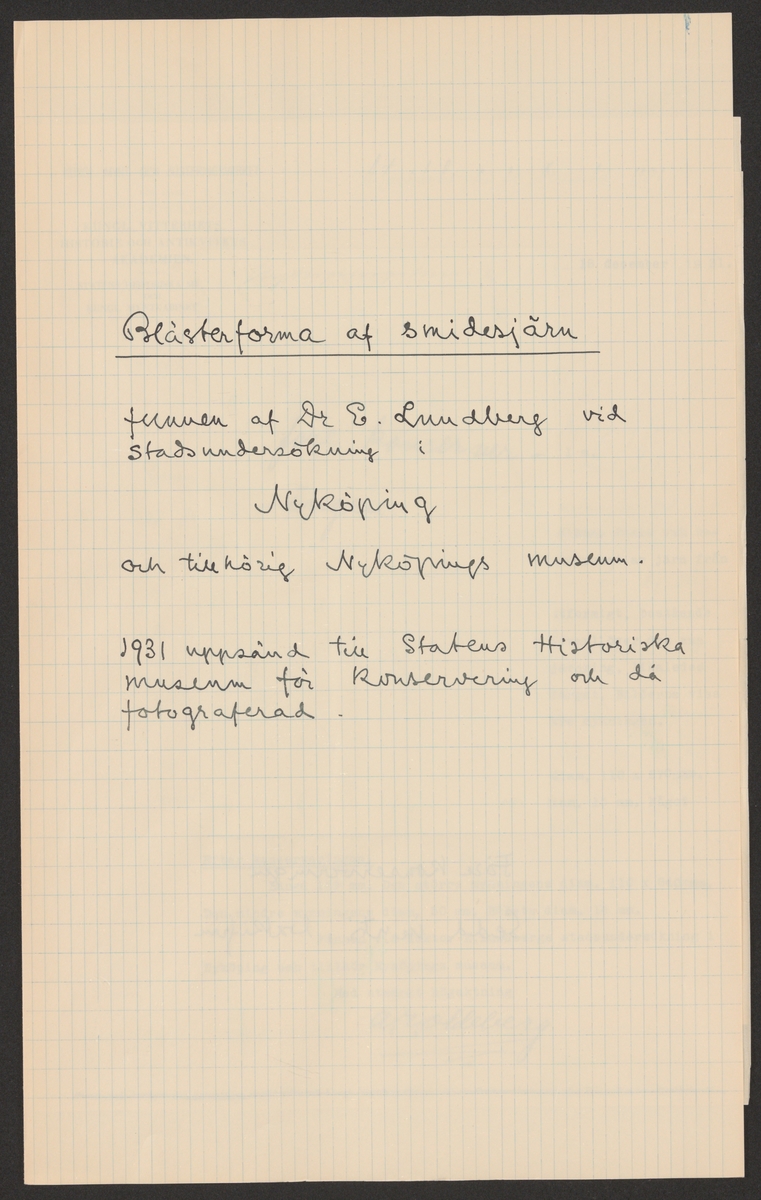 Blästerforma af smidesjärn
funnen af Dr E. Lundberg vid
stadsundersökning i
Nyköping
och tillhörig Nyköpings museum.
1931 uppsänd till Statens Historiska
museum för konservering och då
fotograferad.